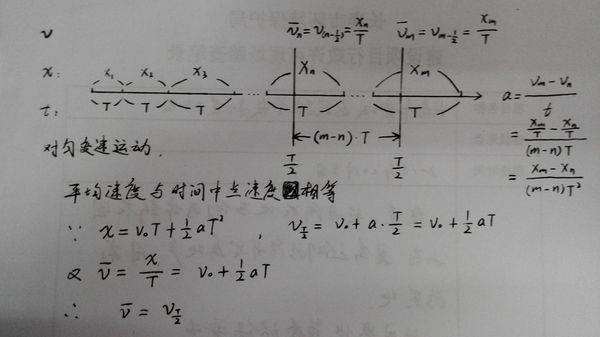 v
v̄ₙ=v₍ₙ₋½₎=xₙ/T v̄ₘ=vₘ₋½=xₘ/T
x: x₁ x₂ x₃ … Xₙ … Xₘ
t: T T T T T
a = (vₘ-vₙ)/t
(m-n)·T
= (xₘ/T - xₙ/T)/((m-n)T)
T/2 T/2
= (xₘ-xₙ)/((m-n)T²)
对匀变速运动,
平均速度与时间中点速度相等
∵ x=v₀T+½aT² , v_{T/2} = v₀+a·T/2 = v₀+½aT
又 v̄ = x/T = v₀+½aT
∴ v̄ = v_{T/2}